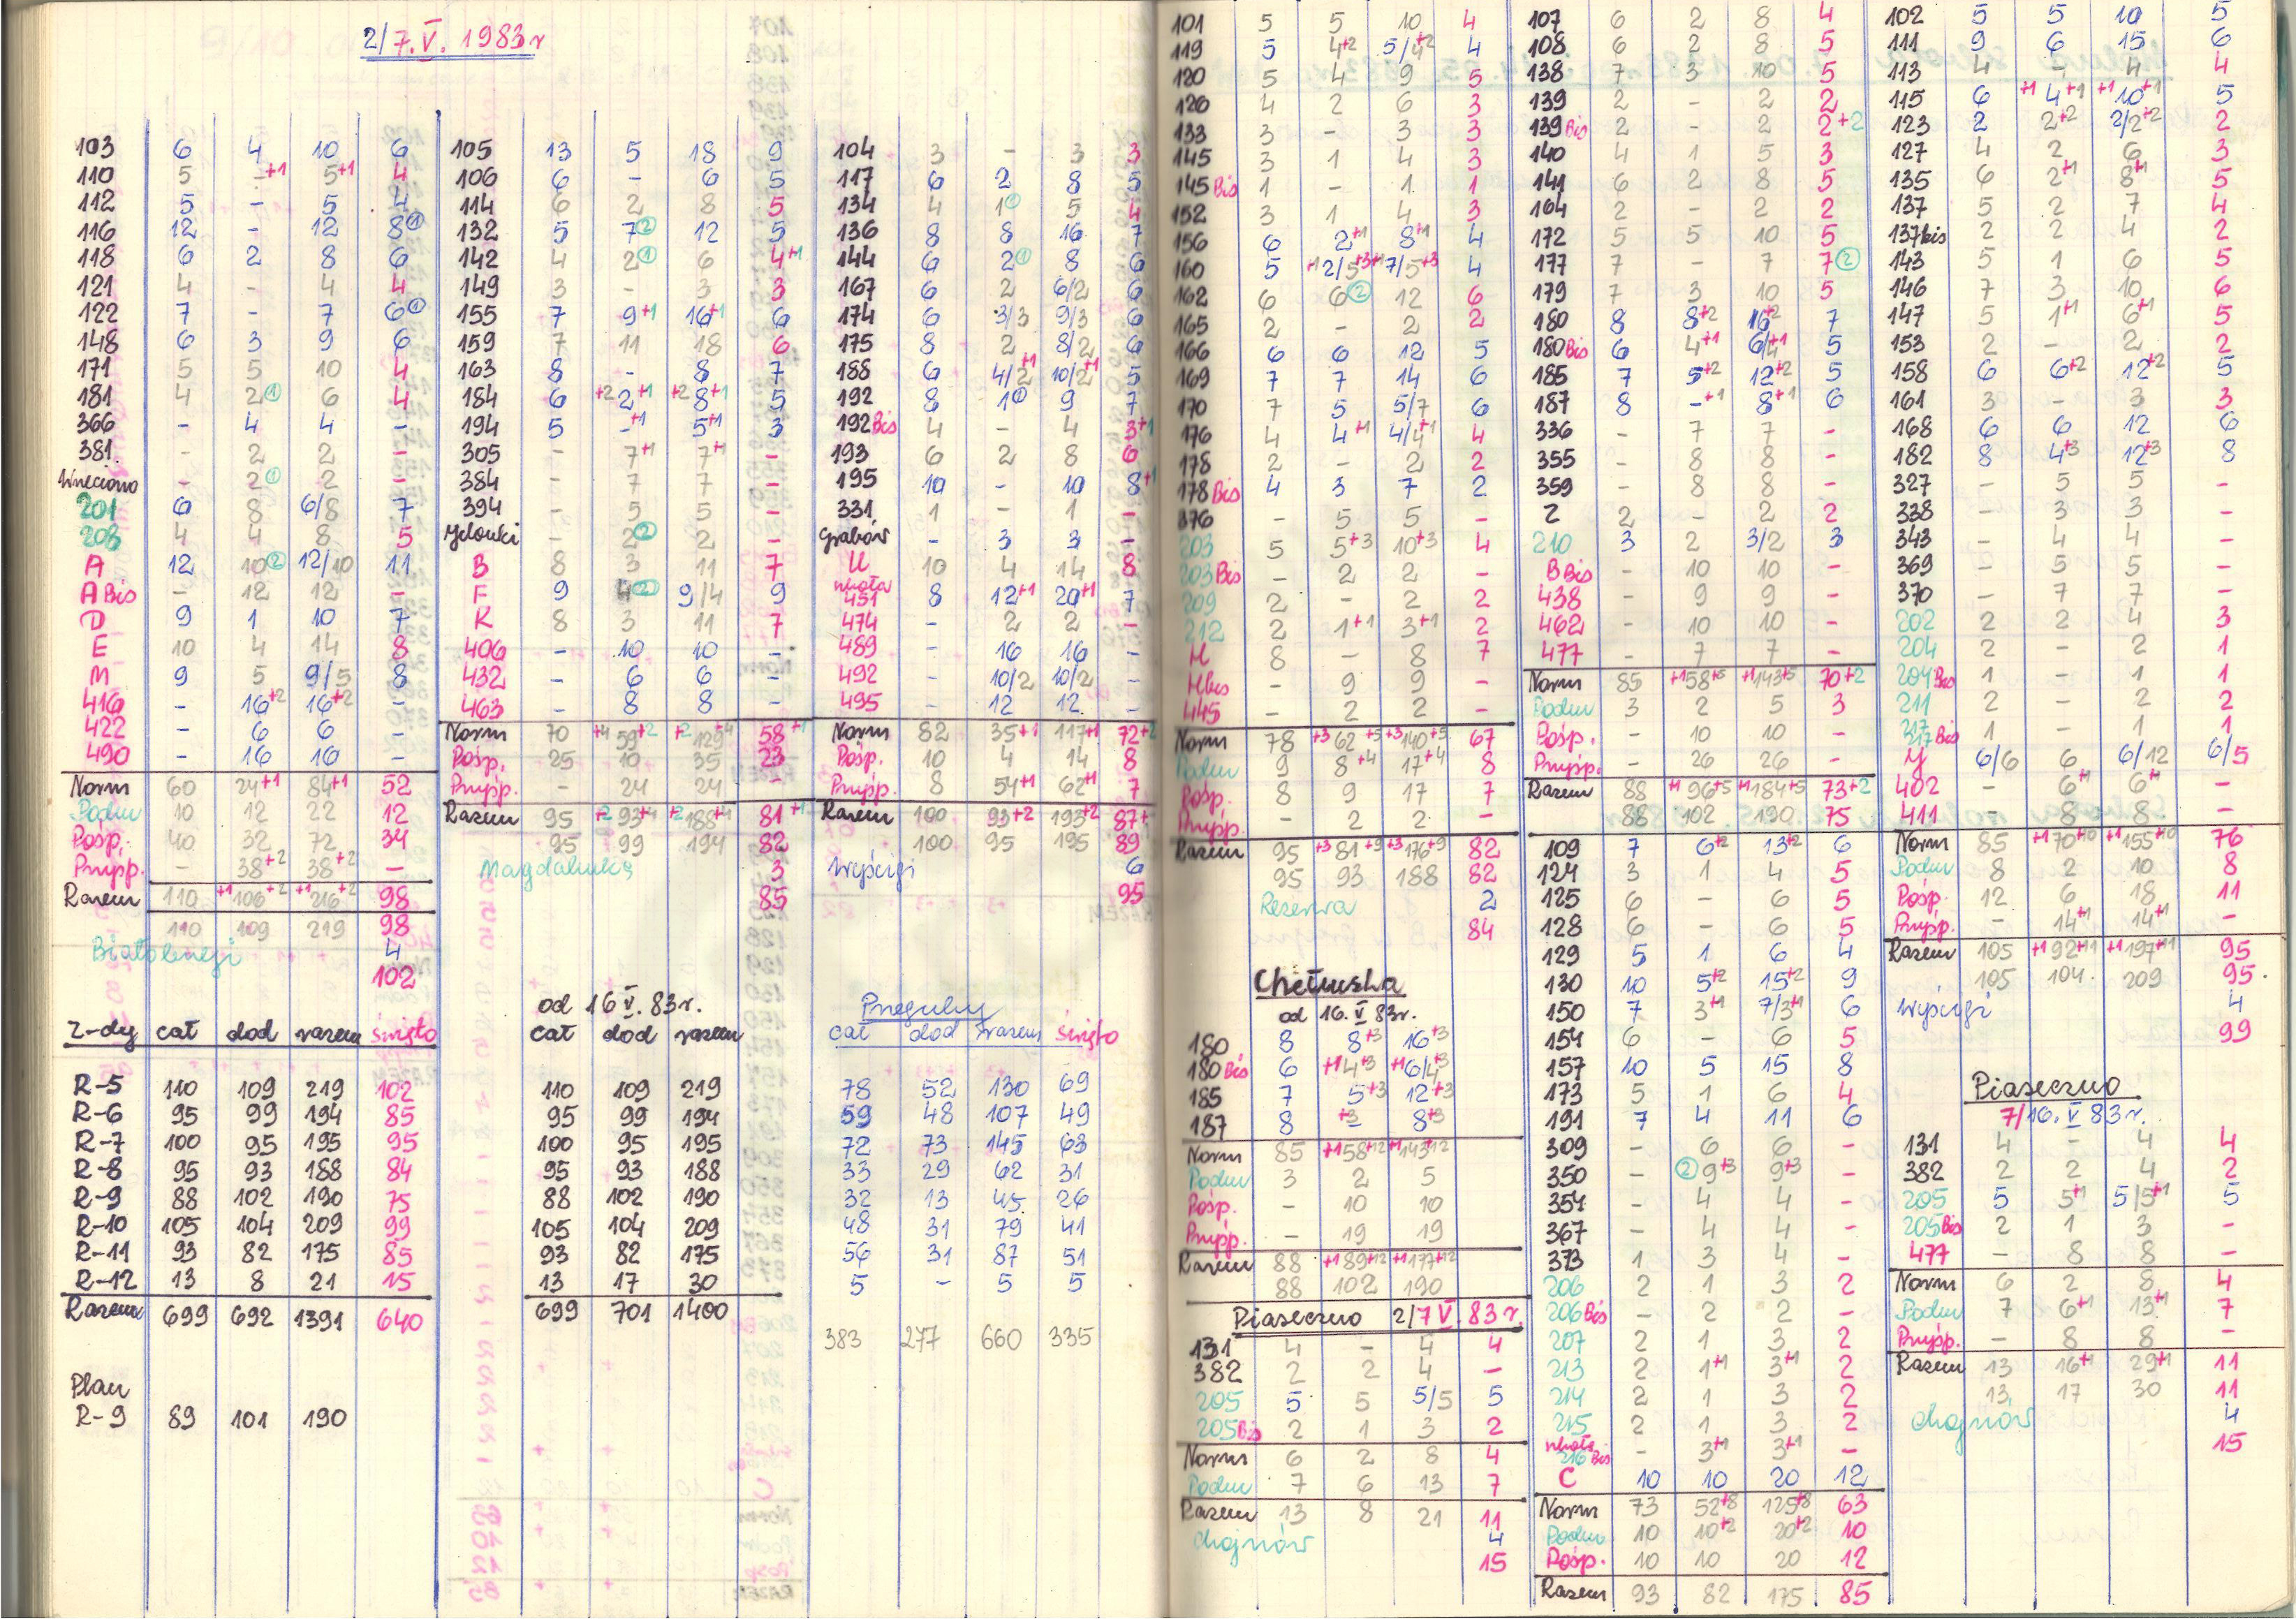 2/7.V. 1983r
103 6 4 10 6
110 5 -+1 5+1 4
112 5 - 5 4
116 12 - 12 8①
118 6 2 8 6
121 4 - 4 4
122 7 - 7 6①
148 6 3 9 6
171 5 5 10 4
181 4 2① 6 4
366 - 4 4 -
381 - 2 2 -
Wrzeciono - 2① 2 -
201 6 8 6/8 7
208 4 4 8 5
A 12 10② 12/10 11
A Bis - 12 12 -
D 9 1 10 7
E 10 4 14 8
M 9 5 9/5 8
416 - 16+2 16+2 -
422 - 6 6 -
490 - 16 16 -
Norm 60 24+1 84+1 52
Podm 10 12 22 12
Pośp. 40 32 72 34
Przysp. - 38+2 38+2 -
Razem 110 +1106+2 +1216+2 98
110 109 219 98
Białołenęki 4
102
105 13 5 18 9
106 6 - 6 5
114 6 2 8 5
132 5 7② 12 5
142 4 2① 6 4+1
149 3 - 3 3
155 7 9+1 16+1 6
159 7 11 18 6
163 8 - 8 7
184 6 +22+1 +28+1 5
194 5 -+1 5+1 3
305 - 7+1 7+1 -
384 - 7 7 -
394 - 5 5 -
Jelonki - 2② 2 -
B 8 3 11 7
F 9 4② 9/4 9
K 8 3 11 7
406 - 10 10 -
432 - 6 6 -
463 - 8 8 -
Norm 70 59+2 129+4 58+1
Pośp. 25 10 35 23
Przysp. - 24 24 -
Razem 95 +293+4 +2188+4 81+1
95 99 194 82
Magdalenkę 3
85
104 3 - 3 3
117 6 2 8 5
134 4 1① 5 4
136 8 8 16 7
144 6 2① 8 6
167 6 2 6/2 6
174 6 3/3 9/3 6
175 8 2 8/2 6
188 6 4/2+1 10/2+1 5
192 8 1① 9 7
192 Bis 4 - 4 3+1
193 6 2 8 6
195 10 - 10 8+1
331 1 - 1 -
Grabów - 3 3 -
U 10 4 14 8
451 8 12+1 20+1 7
474 - 2 2 -
489 - 16 16 -
492 - 10/2 10/2 -
495 - 12 12 -
Norm 82 35+1 117+1 72+2
Pośp. 10 4 14 8
Przysp. 8 54+1 62+1 7
Razem 100 93+2 193+2 87+
100 95 195 89
Wyścigi 6
95
od 16 V. 83r.
Przeguby
Z-dy cał dod razem święto
cał dod razem
cał dod razem święto
R-5 110 109 219 102 110 109 219 78 52 130 69
R-6 95 99 194 85 95 99 194 59 48 107 49
R-7 100 95 195 95 100 95 195 72 73 145 63
R-8 95 93 188 84 95 93 188 33 29 62 31
R-9 88 102 190 75 88 102 190 32 13 45 26
R-10 105 104 209 99 105 104 209 48 31 79 41
R-11 93 82 175 85 93 82 175 56 31 87 51
R-12 13 8 21 15 13 17 30 5 - 5 5
Razem 699 692 1391 640 699 701 1400
383 277 660 335
Plan
R-9 89 101 190
101 5 5 10 4
119 5 4+2 5/4+2 4
120 5 4 9 5
126 4 2 6 3
133 3 - 3 3
145 3 1 4 3
145 Bis 1 - 1 1
152 3 1 4 3
156 6 2+1 8+1 4
160 5 +12/5+3 +17/5+3 4
162 6 6② 12 6
165 2 - 2 2
166 6 6 12 5
169 7 7 14 6
170 7 5 5/7 6
176 4 4+1 4/4+1 4
178 2 - 2 2
178 Bis 4 3 7 2
376 - 5 5 -
203 5 5+3 10+3 4
203 Bis - 2 2 -
209 2 - 2 2
212 2 1+1 3+1 2
H 8 - 8 7
H bis - 9 9 -
445 - 2 2 -
Norm 78 +362+5 +3140+5 67
Podm 9 8+4 17+4 8
Pośp. 8 9 17 7
Przysp. - 2 2 -
Razem 95 +381+9 +3176+9 82
95 93 188 82
Rezerwa 2
84
Chełmska
od 16. V 83r.
180 8 8+3 16+3
180 Bis 6 +14+3 +16/4+3
185 7 5+3 12+3
187 8 -+3 8+3
Norm 85 +158+12 +1143+12
Podm 3 2 5
Pośp. - 10 10
Przysp. - 19 19
Razem 88 +189+12 +1177+12
88 102 190
Piaseczno 2/7 V. 83r.
131 4 - 4 4
382 2 2 4 -
205 5 5 5/5 5
205 Bis 2 1 3 2
Norm 6 2 8 4
Podm 7 6 13 7
Razem 13 8 21 11
Chojnów 4
15
107 6 2 8 4
108 6 2 8 5
138 7 3 10 5
139 2 - 2 2
139 Bis 2 - 2 2+2
140 4 1 5 3
141 6 2 8 5
164 2 - 2 2
172 5 5 10 5
177 7 - 7 7②
179 7 3 10 5
180 8 8+2 16+2 7
180 Bis 6 4+1 6/4+1 5
185 7 5+2 12+2 5
187 8 -+1 8+1 6
336 - 7 7 -
355 - 8 8 -
359 - 8 8 -
Z 2 - 2 2
210 3 2 3/2 3
B Bis - 10 10 -
438 - 9 9 -
462 - 10 10 -
477 - 7 7 -
Norm 85 +158+5 +1143+5 70+2
Podm 3 2 5 3
Pośp. - 10 10 -
Przysp. - 26 26 -
Razem 88 +196+5 +1184+5 73+2
88 102 190 75
109 7 6+2 13+2 6
124 3 1 4 5
125 6 - 6 5
128 6 - 6 5
129 5 1 6 4
130 10 5+2 15+2 9
150 7 3+1 7/3+1 6
154 6 - 6 5
157 10 5 15 8
173 5 1 6 4
191 7 4 11 6
309 - 6 6 -
350 - ②9+3 9+3 -
354 - 4 4 -
367 - 4 4 -
373 1 3 4 -
206 2 1 3 2
206 Bis - 2 2 -
207 2 1 3 2
213 2 1+1 3+1 2
214 2 1 3 2
215 2 1 3 2
216 Bis - 3+1 3+1 -
C 10 10 20 12
Norm 73 52+8 125+8 63
Podm 10 10+2 20+2 10
Pośp. 10 10 20 12
Razem 93 82 175 85
102 5 5 10 5
111 9 6 15 6
113 4 - 4 4
115 6 +14+1 +110+1 5
123 2 2+2 2/2+2 2
127 4 2 6 3
135 6 2+1 8+1 5
137 5 2 7 4
137 bis 2 2 4 2
143 5 1 6 5
146 7 3 10 6
147 5 1+1 6+1 5
153 2 - 2 2
158 6 6+2 12+2 5
161 3 - 3 3
168 6 6 12 6
182 8 4+3 12+3 8
327 - 5 5
338 - 3 3 -
343 - 4 4 -
369 - 5 5 -
370 - 7 7 -
202 2 2 4 3
204 2 - 2 1
204 Bis 1 - 1 1
211 2 - 2 2
217 Bis 1 - 1 1
Y 6/6 6 6/12 6/5
402 - 6+1 6+1 -
411 - 8 8 -
Norm 85 +170+10 +1155+10 76
Podm 8 2 10 8
Pośp. 12 6 18 11
Przysp. - 14+1 14+1 -
Razem 105 +192+11 +1197+11 95
105 104 209 95
Wyścigi 4
99
Piaseczno
7/16. V 83r.
131 4 - 4 4
382 2 2 4 2
205 5 5+1 5/5+1 5
205 Bis 2 1 3 -
477 - 8 8 -
Norm 6 2 8 4
Podm 7 6+1 13+1 7
Przysp. - 8 8 -
Razem 13 16+1 29+1 11
13 17 30 11
Chojnów 4
15